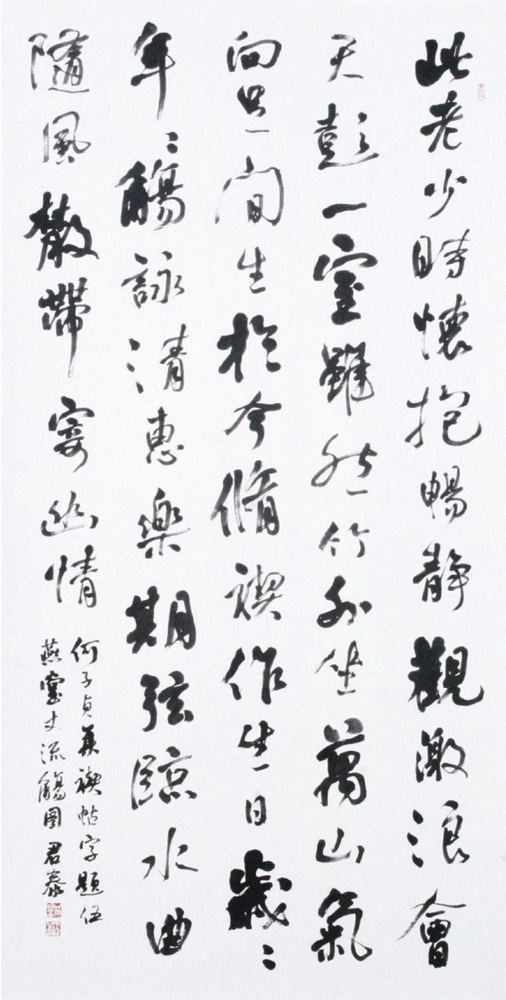 此老少時懷抱暢靜觀激浪會
天彭一室雖然竹外坐萬山氣
向足間生於今脩禊作生日歲〻
年〻觴詠清惠樂期弦臨水曲
隨風散帶寄幽情
何子貞集禊帖字題伍
燕堂丈流觴圖 君泰